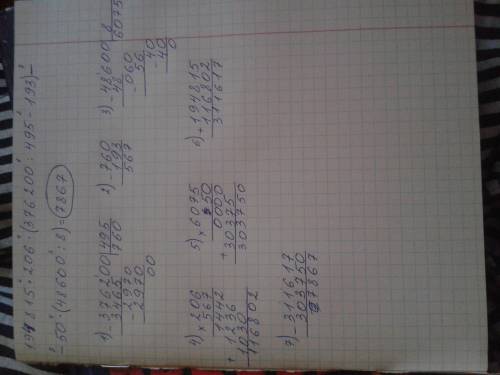 194815+206·(376200:495-193)-
-50·(48600:8)=7867
1) -376200|495
3465 |760
-2970
2970
00
2) -760
193
567
3) -48600|8
48 |6075
-060
56
-40
40
0
4) ×206
567
1442
+1236
1030
116802
5) ×6075
50
0000
+30375
303750
6) +194815
116802
311617
7) -311617
303750
7867